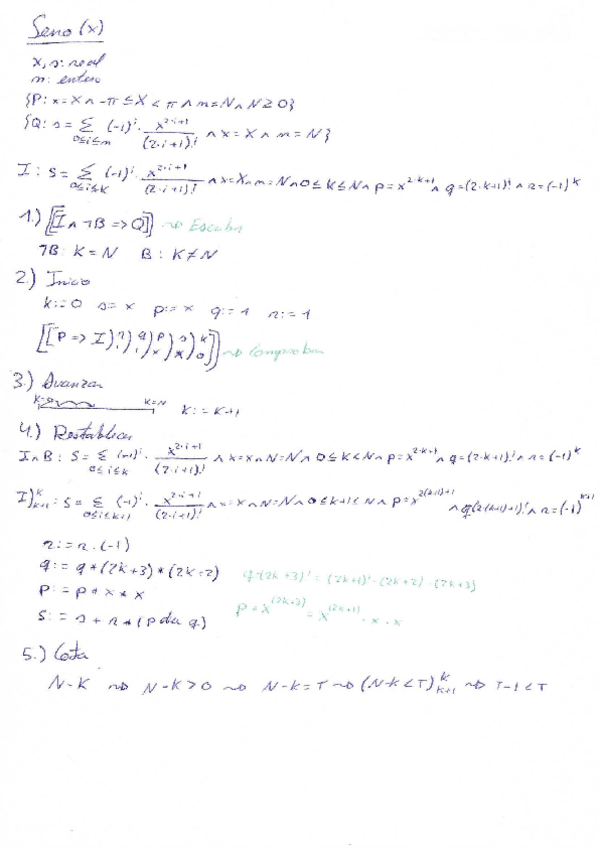 Seno (x)
x, s: real
n: entero
{P: x = X ∧ -π ≤ X < π ∧ n = N ∧ N ≥ 0}
{Q: s = ∑_{0≤i≤n} (-1)^i · x^{2·i+1}/(2·i+1)! ∧ x = X ∧ n = N}
I: S = ∑_{0≤i≤k} (-1)^i · x^{2·i+1}/(2·i+1)! ∧ x = X ∧ n = N ∧ 0 ≤ k ≤ N ∧ p = x^{2·k+1} ∧ q = (2·k+1)! ∧ r = (-1)^k
1.) [[I ∧ ¬B => Q]] ~> Escribir
¬B: K = N B: K ≠ N
2.) Inicio
k:=0 s:= x p:= x q:= 1 r:= 1
[[P => I)^r_1)^q_1)^p_x)^s_x)^k_0]] ~> Comprobar
3.) Avanzar
K=0 K=N K:= K+1
4.) Restablecer
I ∧ B: S = ∑_{0≤i≤k} (-1)^i · x^{2·i+1}/(2·i+1)! ∧ x = X ∧ n = N ∧ 0 ≤ k < N ∧ p = x^{2·k+1} ∧ q = (2·k+1)! ∧ r = (-1)^k
I)^k_{k+1}: S = ∑_{0≤i≤k+1} (-1)^i · x^{2·i+1}/(2·i+1)! ∧ x = X ∧ n = N ∧ 0 ≤ k+1 ≤ N ∧ p = x^{2(k+1)+1} ∧ q(2·(k+1)+1)! ∧ r = (-1)^{k+1}
r:= r·(-1)
q:= q*(2k+3)*(2k+2) q=(2k+3)! = (2k+1)!·(2k+2)·(2k+3)
p:= p*x*x p = x^{(2k+3)} = x^{(2k+1)}·x·x
S:= s + r*(p div q)
5.) Cota
N-K ~> N-K>0 ~> N-k=T ~> (N-k<T)^k_{k+1} ~> T-1<T